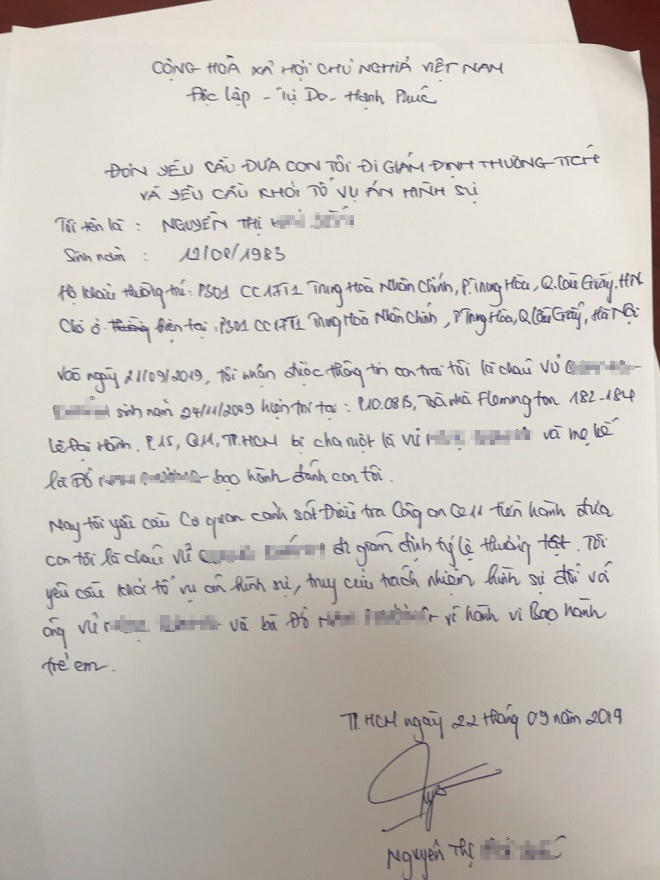 CỘNG HOÀ XÃ HỘI CHỦ NGHĨA VIỆT NAM
Độc lập - Tự Do - Hạnh Phúc
ĐƠN YÊU CẦU ĐƯA CON TÔI ĐI GIÁM ĐỊNH THƯƠNG TÍCH
VÀ YÊU CẦU KHỞI TỐ VỤ ÁN HÌNH SỰ
Tôi tên là : NGUYỄN THỊ
Sinh năm : 12/08/1983
Hộ khẩu thường trú: P301 CC17T1 Trung Hoà Nhân Chính, P.Trung Hòa, Q.Cầu Giấy, HN
Chỗ ở thường hiện tại: P301 CC17T1 Trung Hoà Nhân Chính, P Trung Hòa, Q.Cầu Giấy, Hà Nội
Vào ngày 21/09/2019, tôi nhận được thông tin con trai tôi là cháu VŨ
sinh năm 24/11/2009 hiện trú tại : P10.08B, Toà nhà Flemington 182-184
Lê Đại Hành. P.15, Q11, TP.HCM bị cha ruột là Vũ và mẹ kế
là Đỗ bạo hành đánh con tôi.
Nay tôi yêu cầu Cơ quan cảnh sát Điều tra Công an Q11 tiến hành đưa
con tôi là cháu Vũ đi giám định tỷ lệ thương tật. Tôi
yêu cầu khởi tố vụ án hình sự, truy cứu trách nhiệm hình sự đối với
ông Vũ và bà Đỗ vì hành vi Bạo hành
trẻ em.
TP.HCM ngày 22 tháng 09 năm 2019
Nguyễn Thị